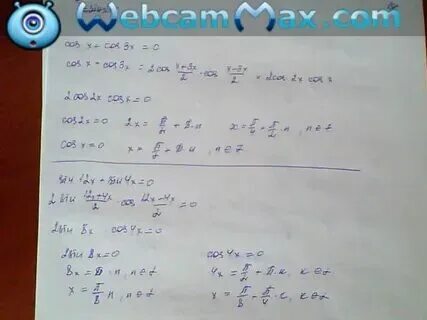 WebcamMax.com
cos x + cos 3x = 0
cos x + cos 3x = 2cos (x+3x)/2 · cos (x-3x)/2 = 2cos 2x cos x
2cos 2x cos x = 0
cos 2x = 0 2x = π/2 + π·n x = π/4 + π/2 · n, n∈Z
cos x = 0 x = π/2 + π·n, n∈Z
sin 12x + sin 4x = 0
2 sin (12x+4x)/2 · cos (12x-4x)/2 = 0
2sin 8x cos 4x = 0
2sin 8x = 0 cos 4x = 0
8x = π·n, n∈Z 4x = π/2 + π·k, k∈Z
x = π/8 n, n∈Z x = π/8 + π/4 · k, k∈Z